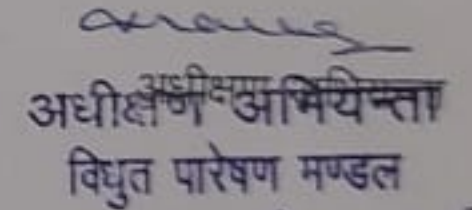 अधीक्षण अभियन्ता
विधुत पारेषण मण्डल